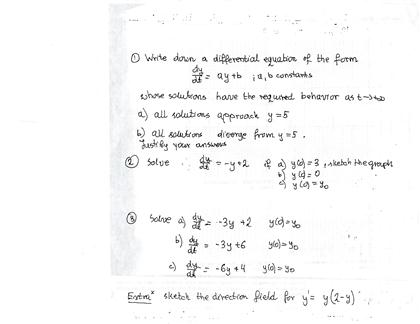 ① Write down a differential equation of the form
dy/dt = ay+b ; a, b constants
whose solutions have the required behavior as t→+∞
a) all solutions approach y=5
b) all solutions diverge from y=5.
Justify your answers
② Solve dy/dt = -y+2 if a) y(0)=3, sketch the graph
b) y(0)=0
c) y(0)=y₀
③ Solve a) dy/dt = -3y +2 y(0)=y₀
b) dy/dt = -3y+6 y(0)=y₀
c) dy/dt = -6y+4 y(0)=y₀
Extra* sketch the direction field for y' = y(2-y)